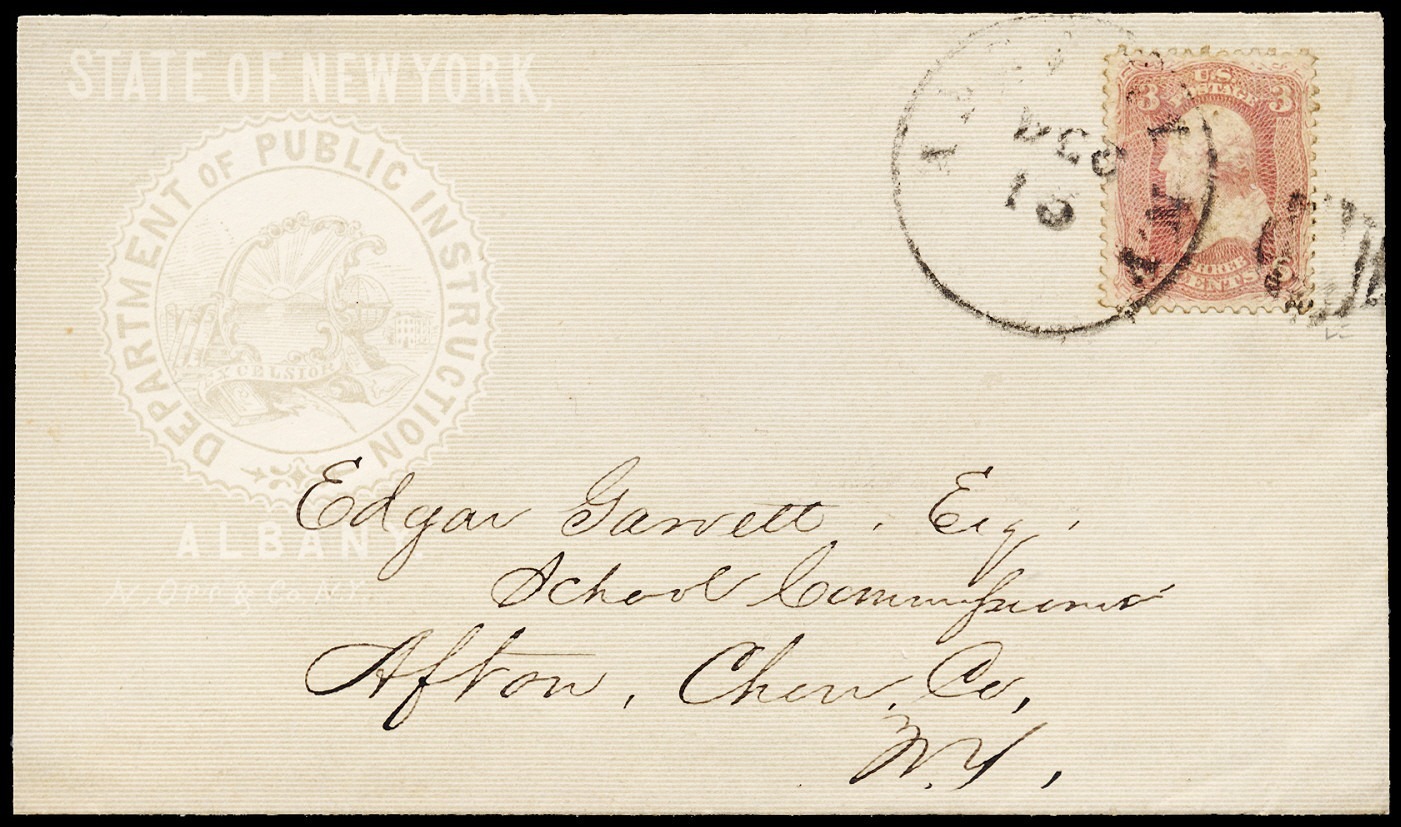 STATE OF NEW YORK,
DEPARTMENT OF PUBLIC INSTRUCTION
EXCELSIOR
ALBANY.
N. ORR & Co. N.Y.
DEC
15
U.S. POSTAGE
3 3
THREE CENTS
Edgar Garrett, Esq.
School Commissioner
Afton, Chen. Co,
N.Y,